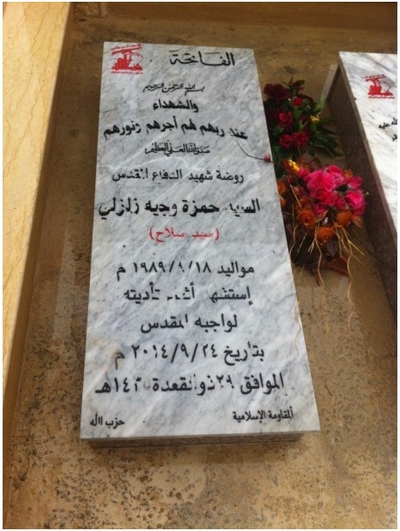 الفاتحة
بسم الله الرحمن الرحيم
والشهداء
عند ربهم لهم أجرهم ونورهم
صدق الله العلي العظيم
روضة شهيد الدفاع المقدس
السيد حمزة وجيه زلزلي
(سيد سلاح)
مواليد ١٩٨٩/٩/١٨ م
إستشهد أثناء تأديته
لواجبه المقدس
بتاريخ ٢٠١٤/٩/٢٤ م
الموافق ٢٩ ذو القعدة ١٤٣٥ هـ
المقاومة الإسلامية
حزب الله